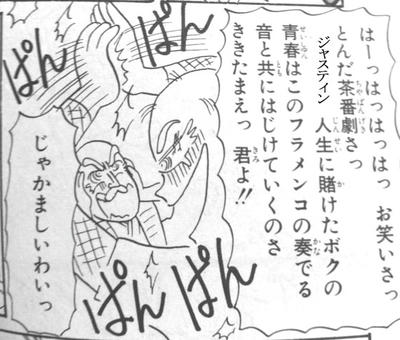 はーっはっはっはっ　お笑いさっ
とんだ茶番劇さっ
ジャスティン　人生に賭けたボクの
青春はこのフラメンコの奏でる
音と共にはじけていくのさ
ききたまえっ　君よ!!
ぱん
ぱん
ぱん
ぱん
じゃかましいわいっ